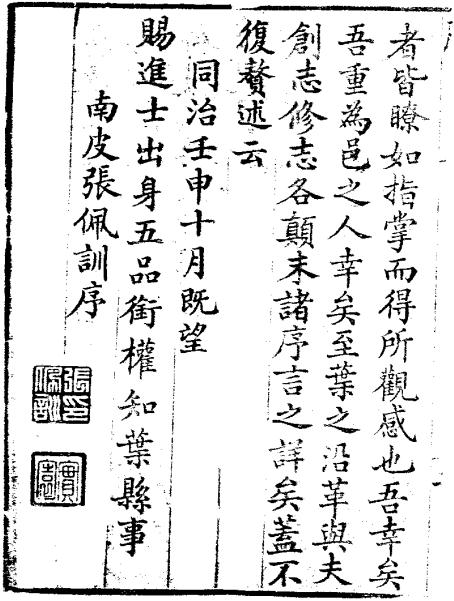 者皆瞭如指掌而得所觀感也吾幸矣
吾重為邑之人幸矣至葉之沿革與夫
創志修志各顛末諸序言之詳矣蓋不
復贅述云
同治壬申十月既望
賜進士出身五品銜權知葉縣事
南皮張佩訓序
張佩訓印